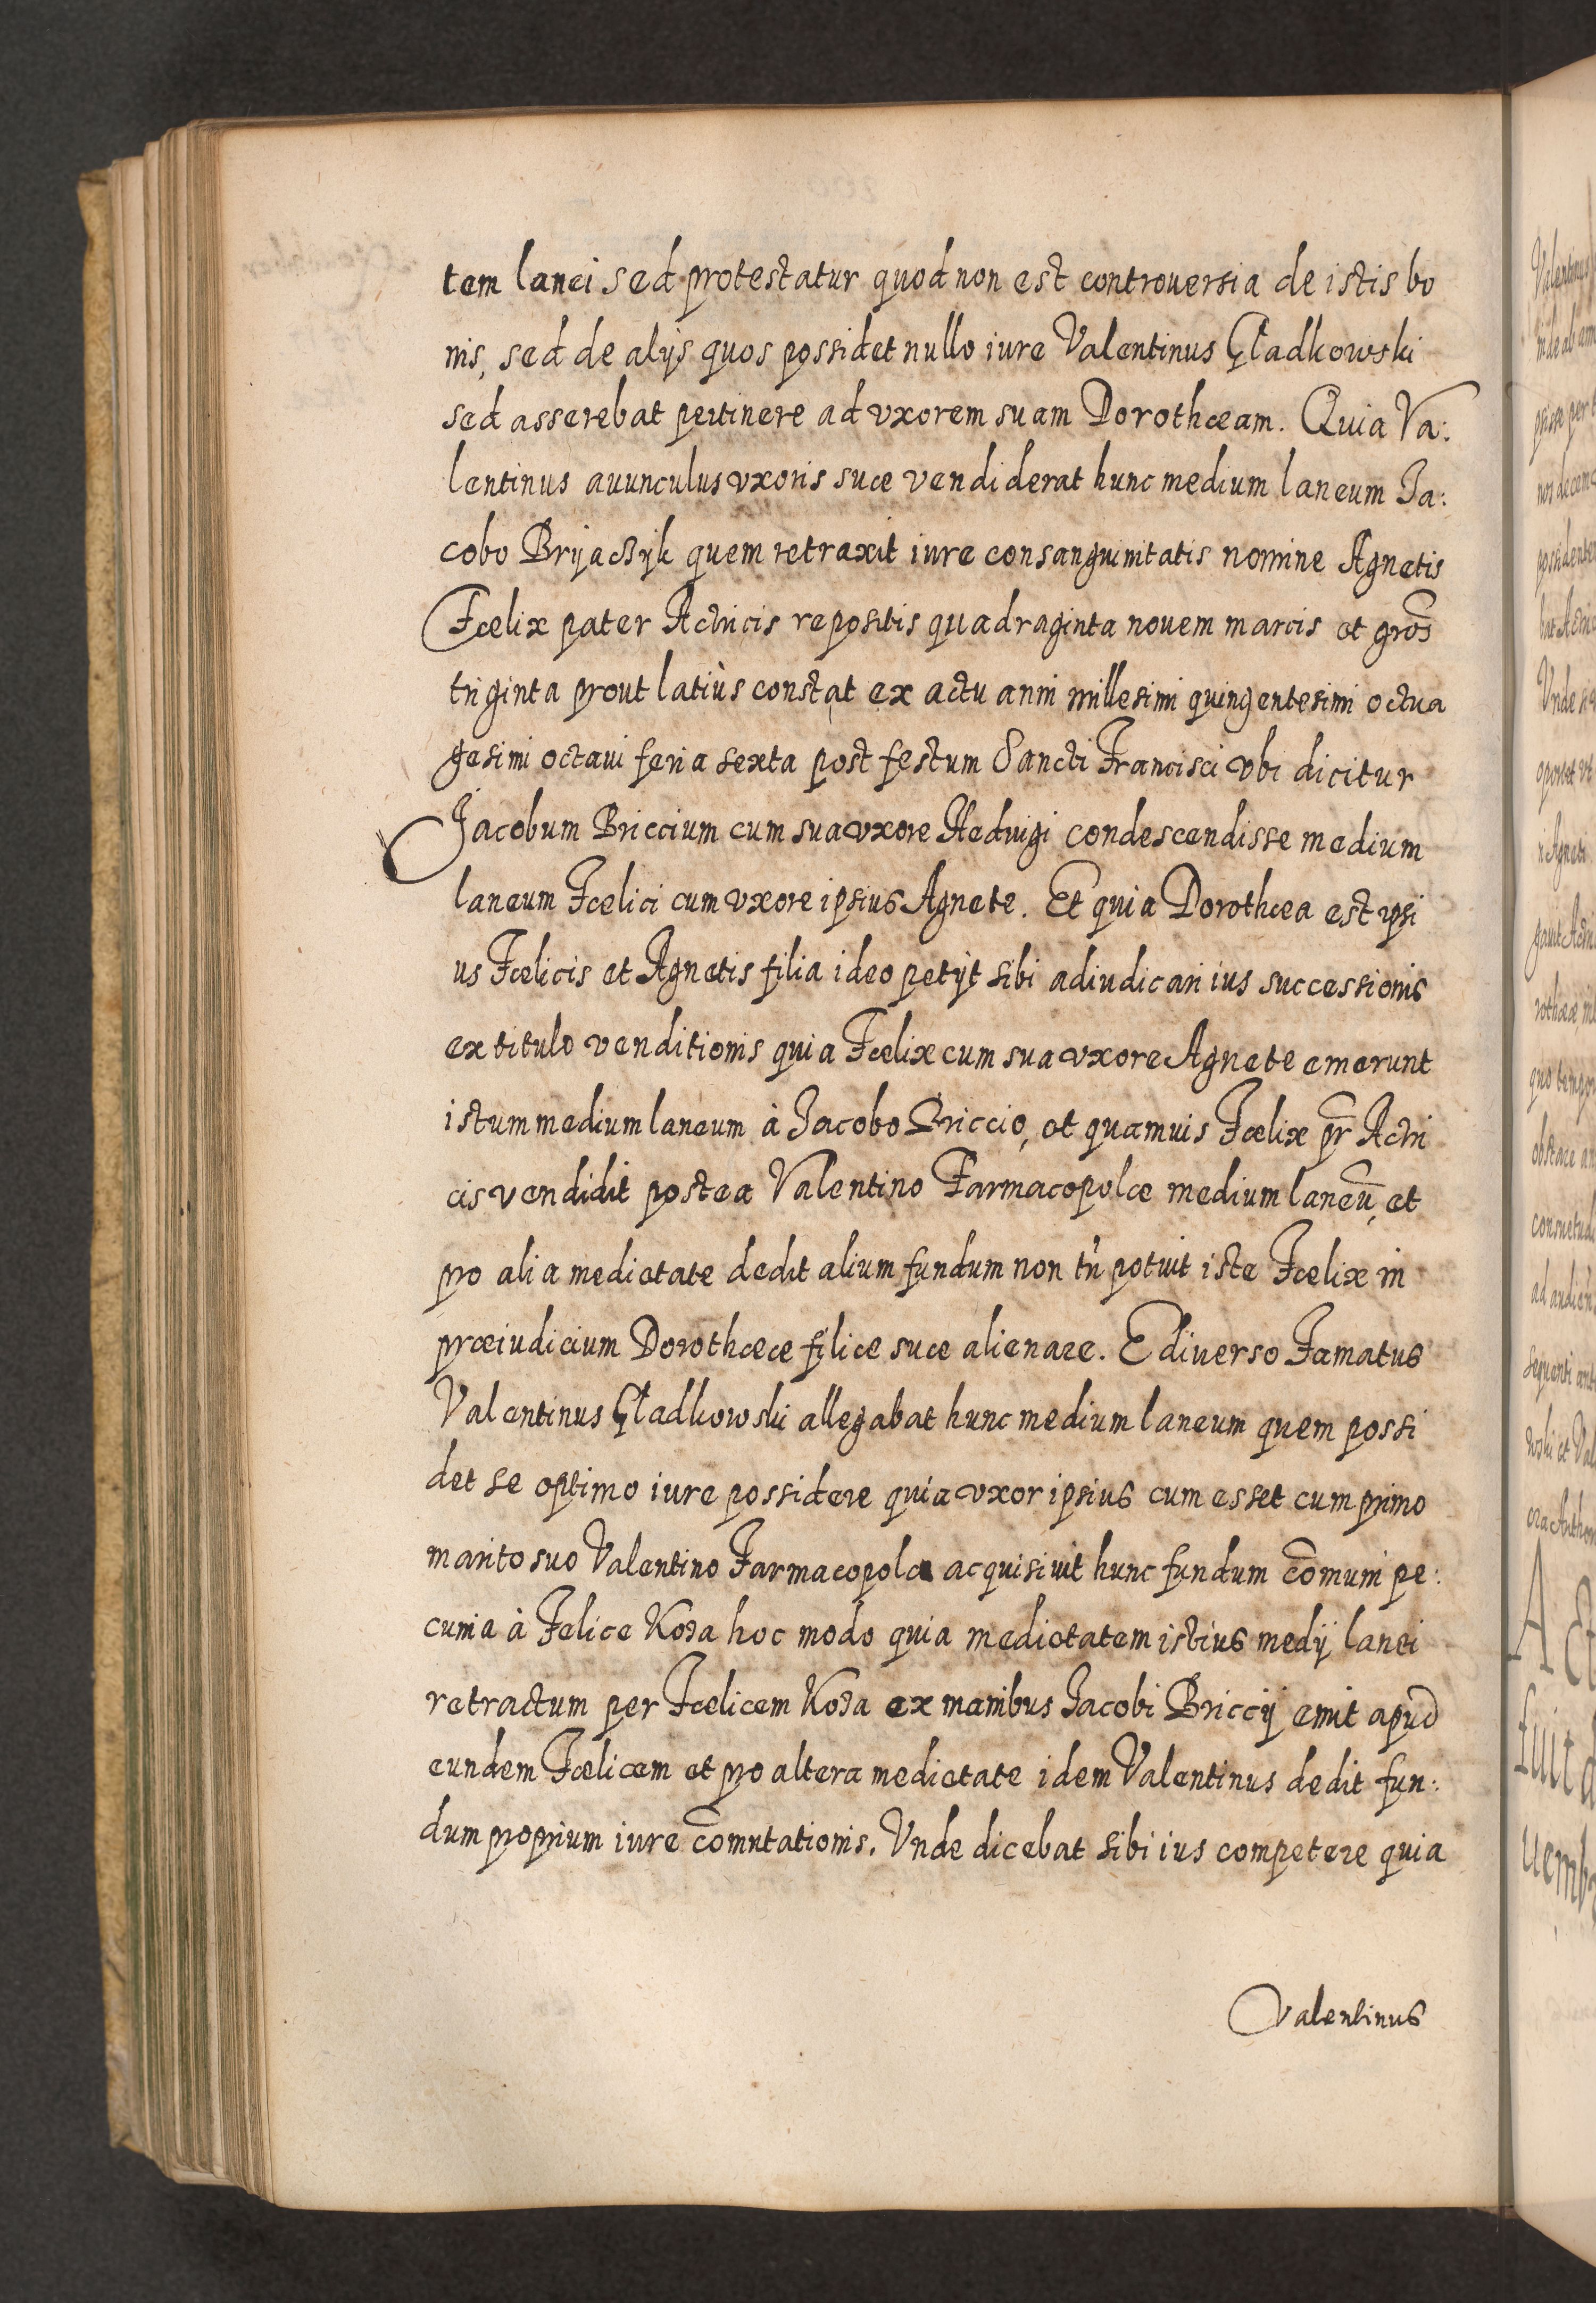 tem lanei sed protestatur quod non est controuersia de istis bo
nis, sed de alijs quos possidet nullo iure Valentinus Gładkowski
sed asserebat pertinere ad vxorem suam Dorothæam. Quia Va:
lentinus auunculus vxoris suæ vendiderat hunc medium laneum Ja:
cobo Bryaczyk quem retraxit iure consanguinitatis nomine Agnetis
Fœlix pater Actricis repositis quadraginta nouem marcis et gros̄
triginta prout latiùs constat ex actu anni millesimi quingentesimi octua
gesimi octaui feria sexta post festum Sancti Francisci vbi dicitur
Jacobum Briccium cum sua vxore Heduigi condescendisse medium
laneum Fœlici cum vxore ipsius Agnete. Et quia Dorothæa est ipsi
us Fœlicis et Agnetis filia ideo petijt sibi adiudicari ius successionis
ex titulo venditionis quia Fœlix cum sua vxore Agnete emerunt
istum medium laneum à Jacobo Briccio, et quamuis Fœlix pr̄ Actri
cis vendidit postea Valentino Farmacopolæ medium laneū, et
pro alia medietate dedit alium fundum non tn̄ potuit iste Fœlix in
præiudicium Dorothææ filiæ suæ alienare. E diuerso Famatus
Valentinus Gładkowski allegabat hunc medium laneum quem possi
det se optimo iure possidere quia vxor ipsius cum esset cum primo
marito suo Valentino Farmacopola acquisiuit hunc fundum com̄uni pe:
cunia à Felice Koza hoc modo quia medietatem istius medij lanei
retractum per Fœlicem Koza ex manibus Jacobi Briccij emit apud
eundem Fœlicem et pro altera medietate idem Valentinus dedit fun:
dum proprium iure com̄utationis. Vnde dicebat sibi ius competere quia
Valentinus